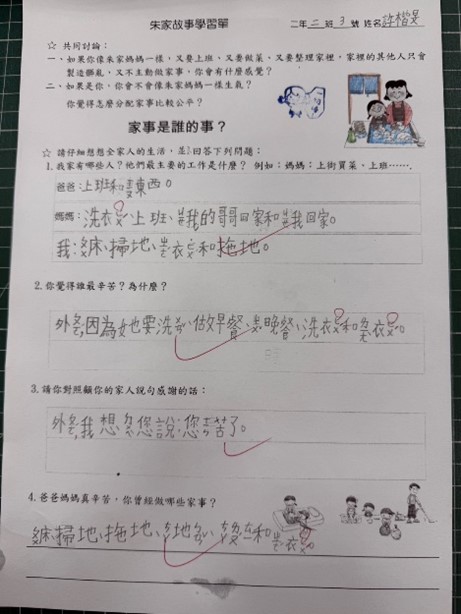 朱家故事學習單
二年二班3號 姓名許楷旻
☆ 共同討論：
一、如果你像朱家媽媽一樣，又要上班、又要做菜、又要整理家裡，家裡的其他人只會
製造髒亂，又不主動做家事，你會有什麼感覺？
二、如果是你，你會不會像朱家媽媽一樣生氣？
你覺得怎麼分配家事比較公平？
家事是誰的事？
☆ 請仔細想想全家人的生活，並回答下列問題：
1.我家有哪些人？他們最主要的工作是什麼？ 例如：媽媽：上街買菜、上班……
爸爸：上班和東西。
媽媽：洗衣、上班、我的哥哥回家和我回家。
我：床、掃地、衣和拖地。
2.你覺得誰最辛苦？為什麼？
外，因為她也要洗、做早餐、晚餐、洗衣和衣。
3.請你對照顧你的家人說句感謝的話：
外，我想您說：您辛苦了。
4.爸爸媽媽真辛苦，你曾經做哪些家事？
床、掃地、拖地、地、和衣